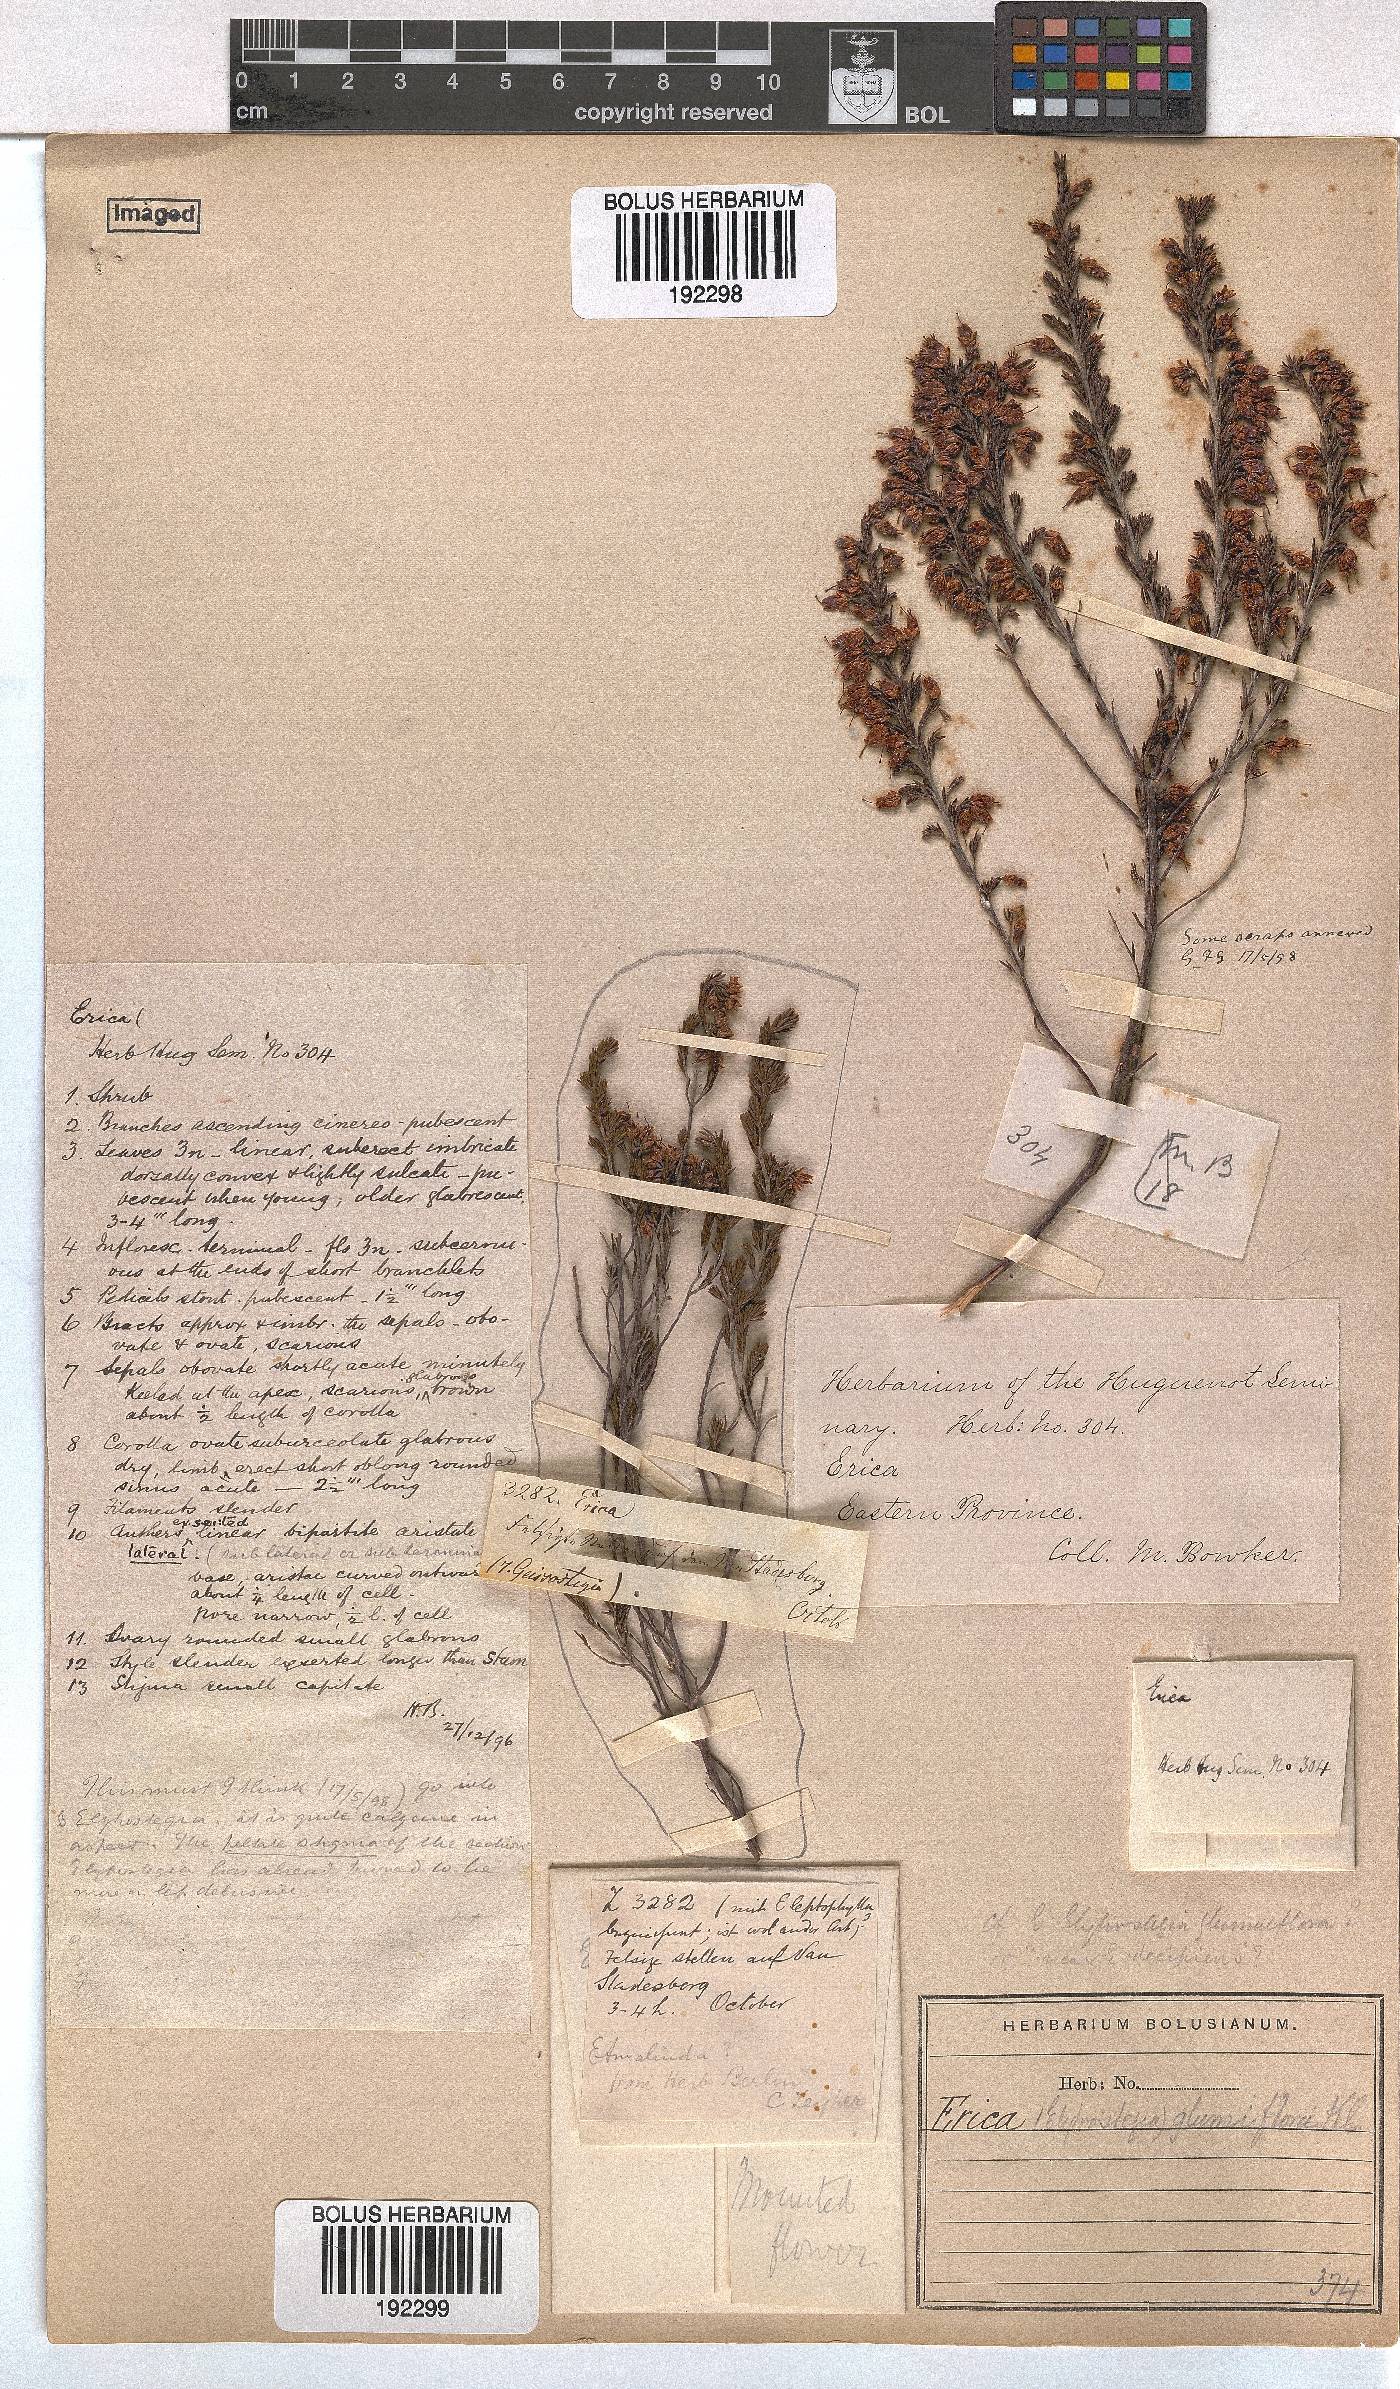 0 1 2 3 4 5 6 7 8 9 10
cm copyright reserved BOL
Imaged
BOLUS HERBARIUM
192298
Some scraps annexed
17/5/98
304
18
Erica (
Herb Hug Sem. No 304
1. Shrub
2. Branches ascending cinereo-pubescent
3. Leaves 3n - linear, suberect imbricate
dorsally convex & lightly sulcate - pu-
bescent when young; older glabrescent,
3-4''' long.
4 Infloresc. terminal - fls 3n - subcernu-
ous at the ends of short branchlets
5 Pedicels stout - pubescent - 1½''' long
6 Bracts approx & imbr. the sepals - obo-
vate & ovate, scarious
7 Sepals obovate shortly acute minutely
keeled at the apex, scarious, glabrous brown
about ½ length of corolla
8 Corolla ovate suburceolate glabrous
dry, limb erect short oblong rounded
sinus acute — 2½''' long
9 Filaments slender
10 Anthers exserted linear bipartite aristate
lateral: (sublateral or sub
base, aristae curved outwar
about ¼ length of cell -
pore narrow, ½ l. of cell
11. Ovary rounded small glabrous
12 Style slender exserted longer than Stam
13 Stigma small capitate
H.B.
27/12/96
This must I think (17/5/98) go into
§ Elytrostegia. it is quite calycine in
aspect. The peltate stigma of the section
Elytrostegia has already proved to be
more or less delusive.
Herbarium of the Huguenot Semi-
nary. Herb: No. 304.
Erica
Eastern Province.
Coll. M. Bowker.
3282. Erica
Octob
Erica
Herb Hug Sem. No 304
Z 3282 (mit E leptophylla
; ist wol ander Art;
Felsige stellen auf Van
Stadesberg
3-4 h. October
E Amalinda?
from herb Berlin
C Zeyher
Mounted
flower
HERBARIUM BOLUSIANUM.
Herb: No.
Erica (Elytrostegia) glumiflora Kl.
374
BOLUS HERBARIUM
192299